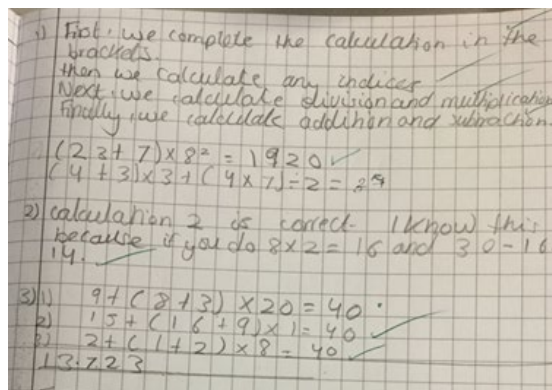 1) First, we complete the calculation in the
brackets.
then we calculate any indices
Next, we calculate division and multiplication
Finally, we calculate addition and subtraction.
(23+7)×8²=1920
(4+3)×3+(4×7)÷2=
2) calculation 2 is correct. I know this
because if you do 8×2=16 and 30-16
14.
3) 1) 9+(8+3)×20=40
2) 15+(16+9)×1=40
3) 2+(1+2)×8=40
13.723